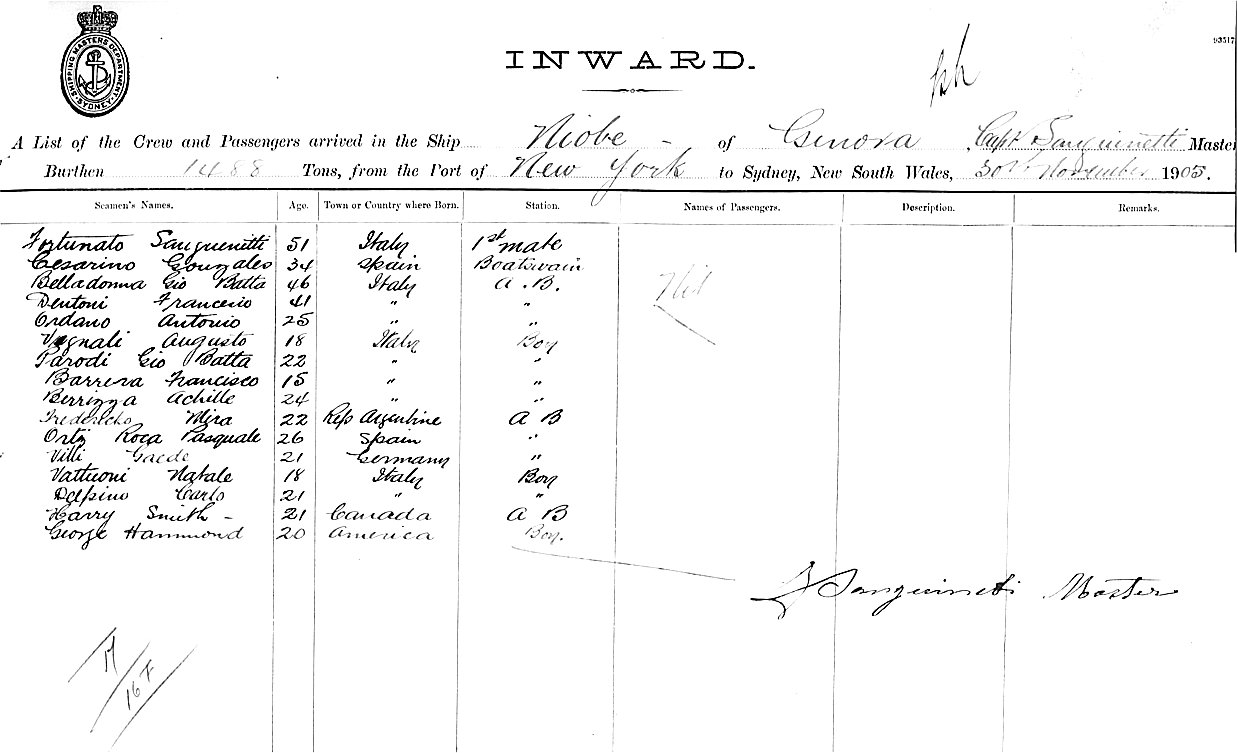 SHIPPING MASTERS DEPARTMENT
SYDNEY
INWARD.
93517
A List of the Crew and Passengers arrived in the Ship Niobe - of Genova Capt Sanguinetti Master
Burthen 1488 Tons, from the Port of New York to Sydney, New South Wales, 30th November 1905.
Seamen's Names. Age. Town or Country where Born. Station. Names of Passengers. Description. Remarks.
Fortunato Sanguenetti 51 Italy 1st mate
Cesarino Gonzales 34 Spain Boatswain
Belladonna Gio Batta 46 Italy A.B. Nil
Dentoni Francesio 41 " "
Ordano Antonio 25 " "
Vegnali Augusto 18 Italy Boy
Parodi Gio Batta 22 " "
Barrera Francisco 15 " "
Berrizza Achille 24 " "
Fredericko Mira 22 Rep Argentine A B
Ortiz Roca Pasquale 26 Spain "
Villi Gaede 21 Germany "
Vattuoni Natale 18 Italy Boy
Delpino Carlo 21 " "
Harry Smith - 21 Canada A B
George Hammond 20 America Boy.
Sanguineti Master
17
16 F